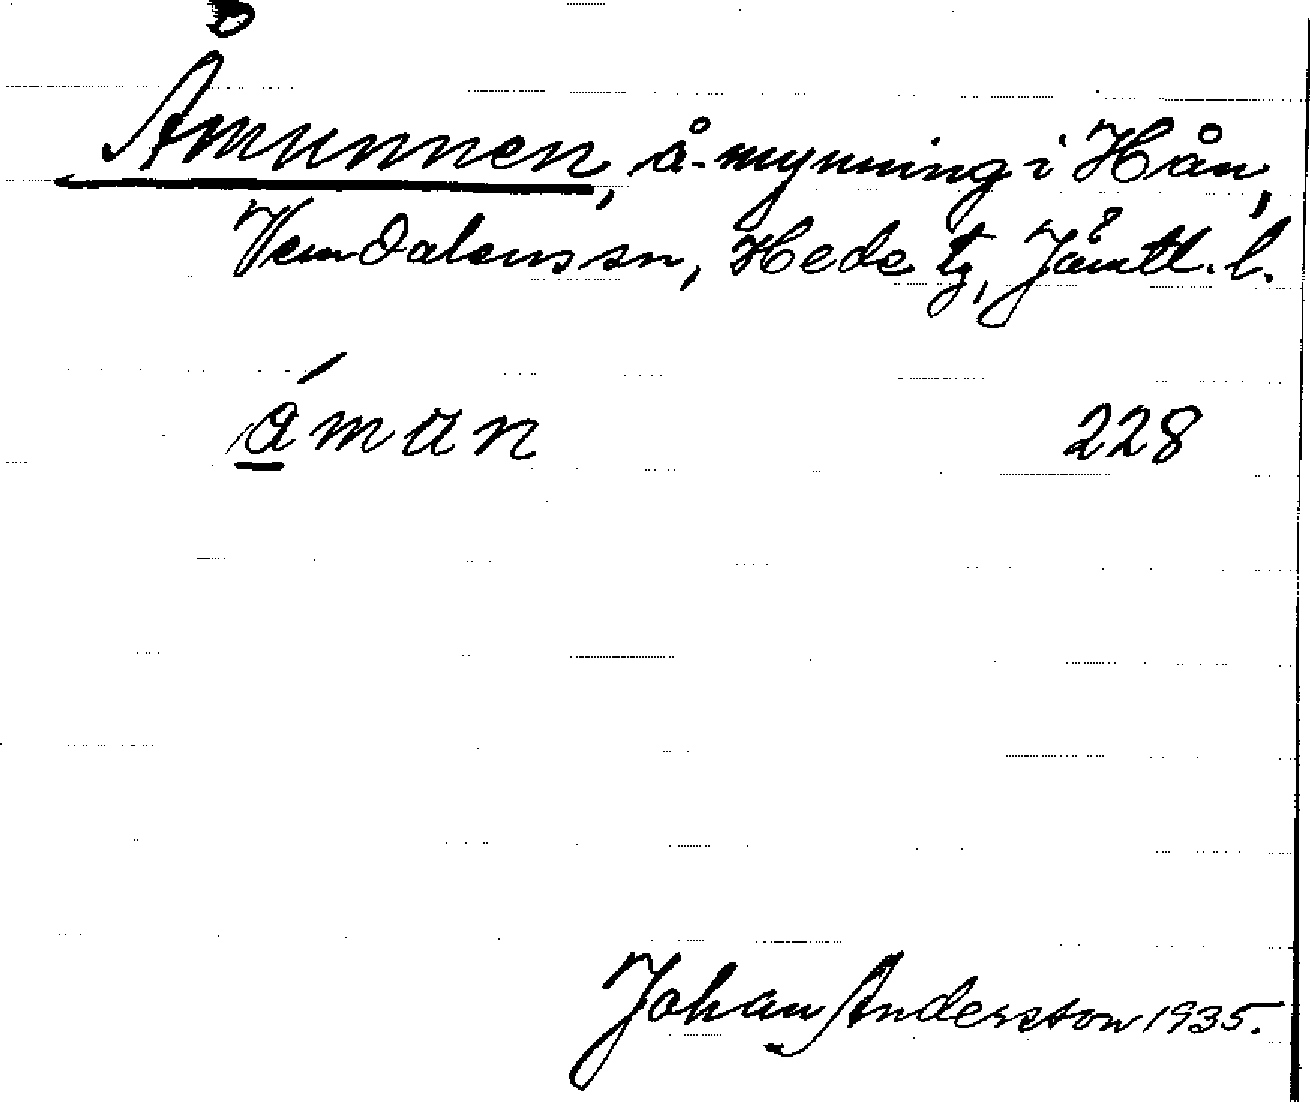 Åmunnen, å-mynning i Hån,
Vemdalens sn, Hede tg, Jämtl. l.
åman 228
Johan Anderston 1935.